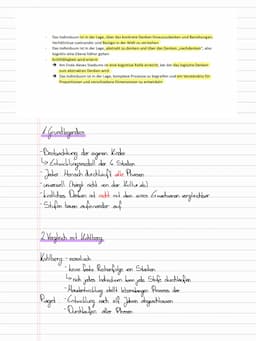 - Das Individuum ist in der Lage, über das konkrete Denken hinauszudenken und Beziehungen,
Verhältnisse zueinander und Bezüge in der Welt zu verstehen
- Das Individuum ist in der Lage, abstrakt zu denken und über das Denken „nachdenken", also
kognitiv eine Ebene höher gehen
➔ Am Ende dieses Stadiums ist eine kognitive Reife erreicht, bei der das logische Denken
zum abstrakten Denken wird
➔ Das Individuum ist in der Lage, komplexe Prozesse zu begreifen und ein Verständnis für
Proportionen und verschiedene Dimensionen zu entwickeln
1. Grundlegendes
- Beobachtung der eigenen Kinder
↳ Entwicklungsmodell der 4 Stadien
- Jeder Mensch durchläuft alle Phasen
- universell (hängt nicht von der Kultur ab)
- kindliches Denken ist nicht mit dem eines Erwachsenen vergleichbar
- Stufen bauen aufeinander auf
2. Vergleich mit Kohlberg
Kohlberg: - moralisch
- keine feste Reihenfolge von Stadien
↳ nicht jedes Individuum kann jede Stufe durchlaufen
- Moralentwicklung stellt lebenslangen Prozess dar
Piaget: - Entwicklung nach Jahren abgeschlossen
- Durchlaufen aller Phasen